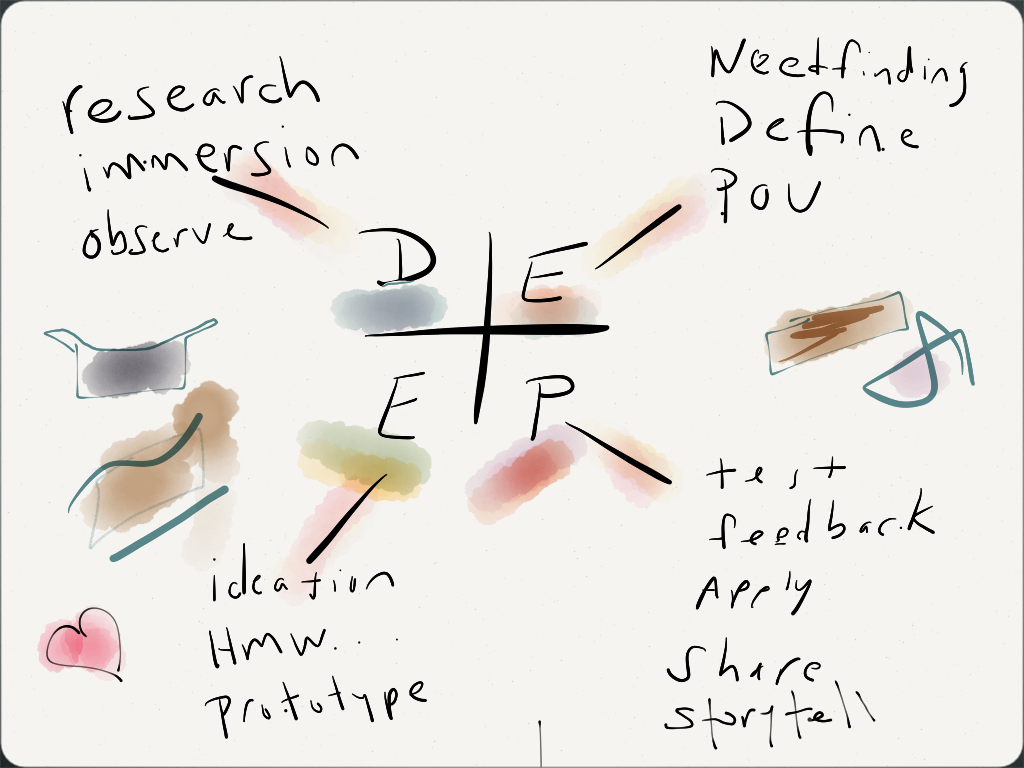 research
immersion
observe
Needfinding
Define
POV
D E
E P
ideation
HMW...
Prototype
test
feedback
Apply
Share
storytell